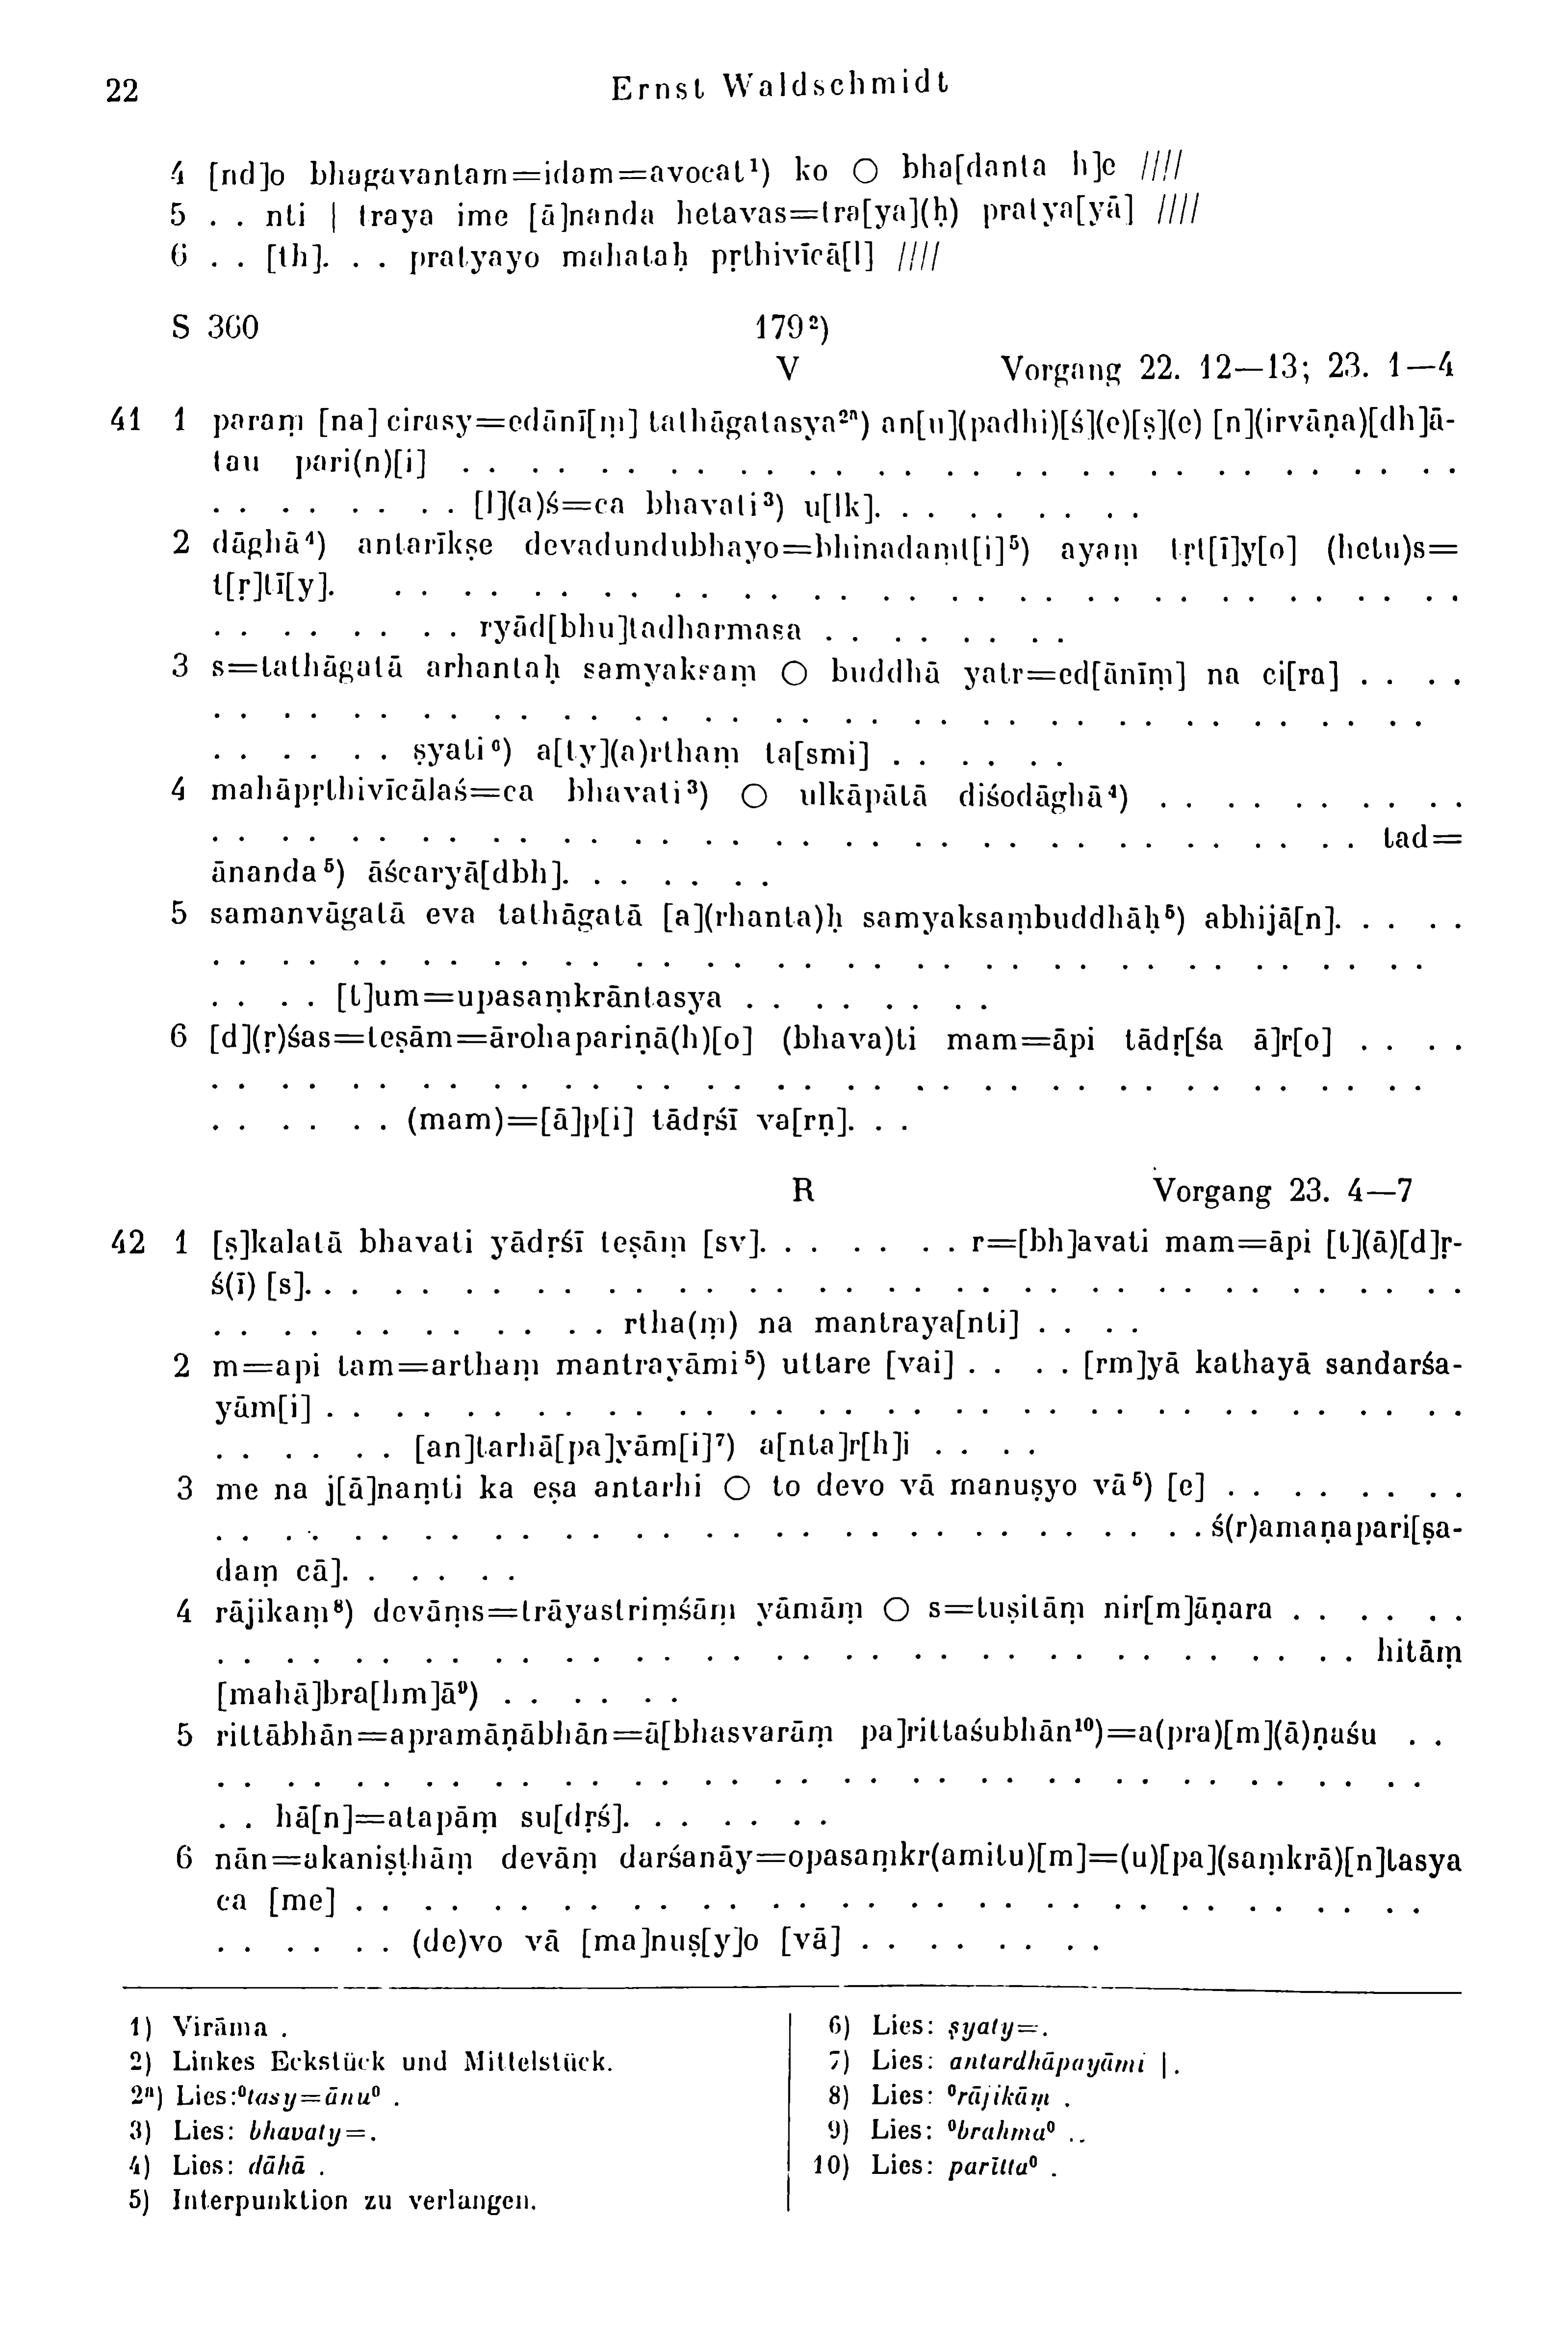 22 Ernst Waldschmidt
4 [nd]o bhagavantam=idam=avocat¹) ko ○ bha[danta h]e ////
5 . . nti | traya ime [ā]nanda hetavas=tra[ya](ḥ) pratya[yā] ////
6 . . [th]. . . pratyayo mahataḥ pṛthivīcā[l] ////
S 360 179²)
V Vorgang 22. 12—13; 23. 1—4
41 1 paraṃ [na] cirasy=edānī[ṃ] tathāgatasya²ᵃ) an[u](padhi)[ś](e)[ṣ](e) [n](irvāṇa)[dh]ā-
tau pari(n)[i] . . . . . . . . . . . . . . . . . . . . . . . . . . . . .
. . . . . . . . [l](a)ś=ca bhavati³) u[lk]. . . . . . . . .
2 dāghā⁴) antarīkṣe devadundubhayo=bhinadaṃt[i]⁵) ayaṃ tṛt[ī]y[o] (hetu)s=
t[ṛ]tī[y]. . . . . . . . . . . . . . . . . . . . . . . . . . . . . . . .
. . . . . . . . ryād[bhu]tadharmasa . . . . . . . .
3 s=tathāgatā arhantaḥ samyaksaṃ ○ buddhā yatr=ed[ānīṃ] na ci[ra] . . . .
. . . . . . . . . . . . . . . . . . . . . . . . . . . . . . . . . . .
. . . . . . ṣyati⁶) a[ty](a)rthaṃ ta[smi] . . . . . .
4 mahāpṛthivīcālaś=ca bhavati³) ○ ulkāpātā diśodāghā⁴) . . . . . . . . .
. . . . . . . . . . . . . . . . . . . . . . . . . . . . . . . . . tad=
ānanda⁵) āścaryā[dbh]. . . . . . .
5 samanvāgatā eva tathāgatā [a](rhanta)ḥ samyaksaṃbuddhāḥ⁵) abhijā[n]. . . . .
. . . . . . . . . . . . . . . . . . . . . . . . . . . . . . . . . . .
. . . . [t]um=upasaṃkrāntasya . . . . . . . .
6 [d](ṛ)śas=teṣām=ārohapariṇā(h)[o] (bhava)ti mam=āpi tādṛ[śa ā]r[o] . . . .
. . . . . . . . . . . . . . . . . . . . . . . . . . . . . . . . . . .
. . . . . . (mam)=[ā]p[i] tādṛśī va[rṇ]. . .
R Vorgang 23. 4—7
42 1 [ṣ]kalatā bhavati yādṛśī teṣāṃ [sv]. . . . . . . r=[bh]avati mam=āpi [t](ā)[d]ṛ-
ś(ī) [s]. . . . . . . . . . . . . . . . . . . . . . . . . . . . . . . . .
. . . . . . . . . . . . rtha(ṃ) na mantraya[nti] . . . .
2 m=api tam=arthaṃ mantrayāmi⁵) uttare [vai] . . . . [rm]yā kathayā sandarśa-
yām[i] . . . . . . . . . . . . . . . . . . . . . . . . . . . . . . . . .
. . . . . . [an]tarhā[pa]yām[i]⁷) a[nta]r[h]i . . . .
3 me na j[ā]naṃti ka eṣa antarhi ○ to devo vā manuṣyo vā⁵) [e] . . . . . . .
. . . . . . . . . . . . . . . . . . . . . . . . . . . . . ś(r)amaṇapari[ṣa-
daṃ cā]. . . . . .
4 rājikaṃ⁸) devāṃs=trāyastriṃśāṃ yāmāṃ ○ s=tuṣitāṃ nir[m]āṇara . . . . . .
. . . . . . . . . . . . . . . . . . . . . . . . . . . . . . . . . hitāṃ
[mahā]bra[hm]ā⁹) . . . . . .
5 rittābhān=apramāṇābhān=ā[bhasvarāṃ pa]rittaśubhān¹⁰)=a(pra)[m](ā)ṇaśu . .
. . . . . . . . . . . . . . . . . . . . . . . . . . . . . . . . . . .
. . hā[n]=atapāṃ su[dṛś]. . . . . . .
6 nān=akaniṣṭhāṃ devāṃ darśanāy=opasaṃkr(amitu)[m]=(u)[pa](saṃkrā)[n]tasya
ca [me] . . . . . . . . . . . . . . . . . . . . . . . . . . . . . . .
. . . . . . (de)vo vā [ma]nuṣ[y]o [vā] . . . . . . . .
1) Virāma .
2) Linkes Eckstück und Mittelstück.
2ᵃ) Lies:⁰tasy=ānu⁰ .
3) Lies: bhavaty=.
4) Lies: dāhā .
5) Interpunktion zu verlangen.
6) Lies: ṣyaty=.
7) Lies: antardhāpayāmi |.
8) Lies: ⁰rājikāṃ .
9) Lies: ⁰brahma⁰ ..
10) Lies: parītta⁰ .